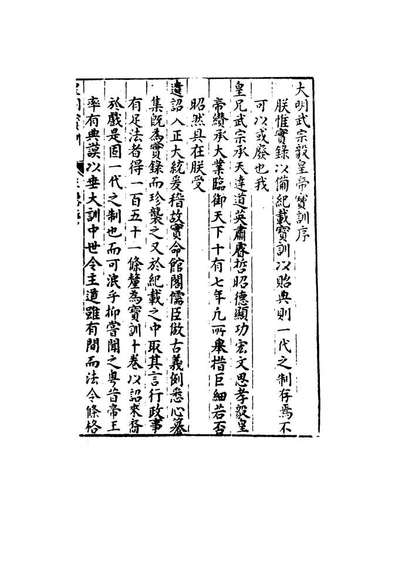 大明武宗毅皇帝寶訓序
朕惟實錄以備紀載寶訓以貽典則一代之制存焉不
可以或廢也我
皇兄武宗承天達道英肅睿哲昭德顯功宏文思孝毅皇
帝纘承大業臨御天下十有七年凡所舉措巨細若否
昭然具在朕受
遺詔入正大統爰稽故實命館閣儒臣倣古義例悉心纂
集既為實錄而珍襲之又於紀載之中取其言行政事
有足法者得一百五十一條釐為寶訓十卷以詔來裔
於戲是固一代之制也而可泯乎抑嘗聞之粵昔帝王
率有典謨以垂大訓中世令主道雖有間而法令條格